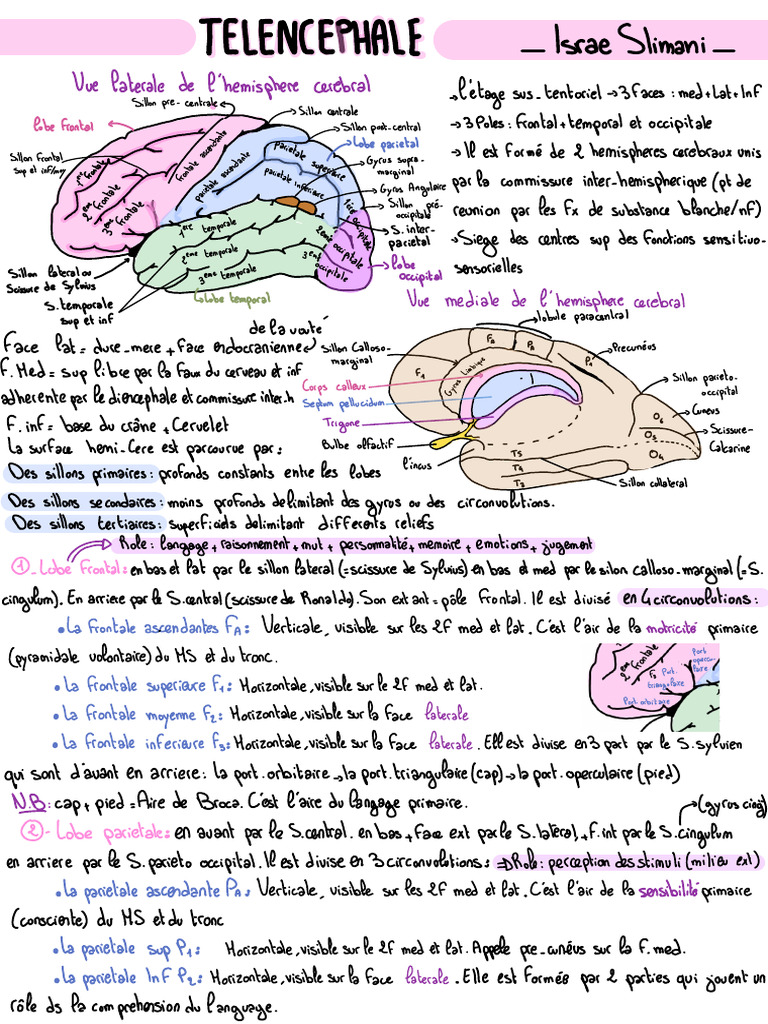 TELENCEPHALE
_ Israe Slimani _
Vue laterale de l'hemisphere cerebral
Sillon pre-centrale
Sillon centrale
lobe frontal
Sillon post-central
Lobe parietal
Sillon frontal
sup et inf/moy
Gyrus supra-
marginal
Gyrus Angulaire
Sillon pré-
occipitale
S. inter-
parietal
lobe
occipital
Sillon lateral ou
Scissure de Sylvius
S. temporale
sup et inf
Lobe temporal
1ere frontale
2eme frontale
3eme frontale
frontale ascendante
parietale ascendante
parietale superieure
parietale inferieure
1ere occipitale
2eme occipitale
3eme occipitale
1ere temporale
2eme temporale
3eme temporale
→ l'étage sus-tentoriel → 3 Faces : med + Lat + Inf
→ 3 Poles : frontal + temporal et occipitale
→ Il est formé de 2 hemispheres cerebraux unis
par la commissure inter-hemispherique (pt de
reunion par les Fx de substance blanche/nf)
→ Siege des centres sup des fonctions sensitivo-
sensorielles
Vue mediale de l'hemisphere cerebral
lobule paracentral
Sillon Calloso-
marginal
Precunéus
Corps calleux
Septum pellucidum
Trigone
Bulbe olfactif
l'incus
Sillon parieto-
occipital
Cuneus
Scissure-
Calcarine
Sillon collateral
Gyrus limbique
F1
FA
PA
P1
O6
O5
O4
T5
T4
T3
de la vouté
Face lat = dure-mere + face endocranienne
F. Med = sup libre par la faux du cerveau et inf
adherente par le diencephale et commissure inter.h
F. inf = base du crâne + Cervelet
La surface hemi-Cere est parcourue par :
Des sillons primaires : profonds constants entre les lobes
Des sillons secondaires : moins profonds delimitant des gyrus ou des circonvolutions.
Des sillons tertiaires : superficiels delimitant differents reliefs
Role : langage + raisonnement + mvt + personnalité + memoire + emotions + jugement
1 - Lobe frontal : en bas et lat par le sillon lateral (= scissure de Sylvius) en bas et med par le silon calloso-marginal (= S.
cingulum). En arriere par le S.central (scissure de Ronaldo). Son ext ant = pôle frontal. Il est divisé en 4 circonvolutions :
• La frontale ascendantes FA : Verticale, visible sur les 2F med et lat. C'est l'air de la motricité primaire
(pyramidale volontaire) du MS et du tronc.
• La frontale superieure F1 : Horizontale, visible sur le 2F med et lat.
• La frontale moyenne F2 : Horizontale, visible sur la face laterale
• La frontale inferieure F3 : Horizontale, visible sur la face laterale. Elle est divise en 3 part par le S.sylvien
2eme frontale
F3
Port. opercu-laire
Port. triangulaire
Port. orbitaire
qui sont d'avant en arriere : la port. orbitaire → la port. triangulaire (cap) → la port. operculaire (pied)
N.B : cap + pied = Aire de Broca. C'est l'aire du langage primaire.
(gyrus cing)
2 - Lobe parietale : en avant par le S.central. en bas + face ext par le S. lateral, + f.int par le S. cingulum
en arriere par le S. parieto occipital. Il est divise en 3 circonvolutions : ⇒ Role : perception des stimuli (milieu ext)
• La parietale ascendante PA : Verticale, visible sur les 2F med et lat. C'est l'air de la sensibilité primaire
(consciente) du MS et du tronc
• La parietale sup P1 : Horizontale, visible sur le 2F med et lat. Appele pre-cunéus sur la F. med.
• La parietale Inf P2 : Horizontale, visible sur la face laterale. Elle est formés par 2 parties qui jouent un
rôle ds la comprehension du language.